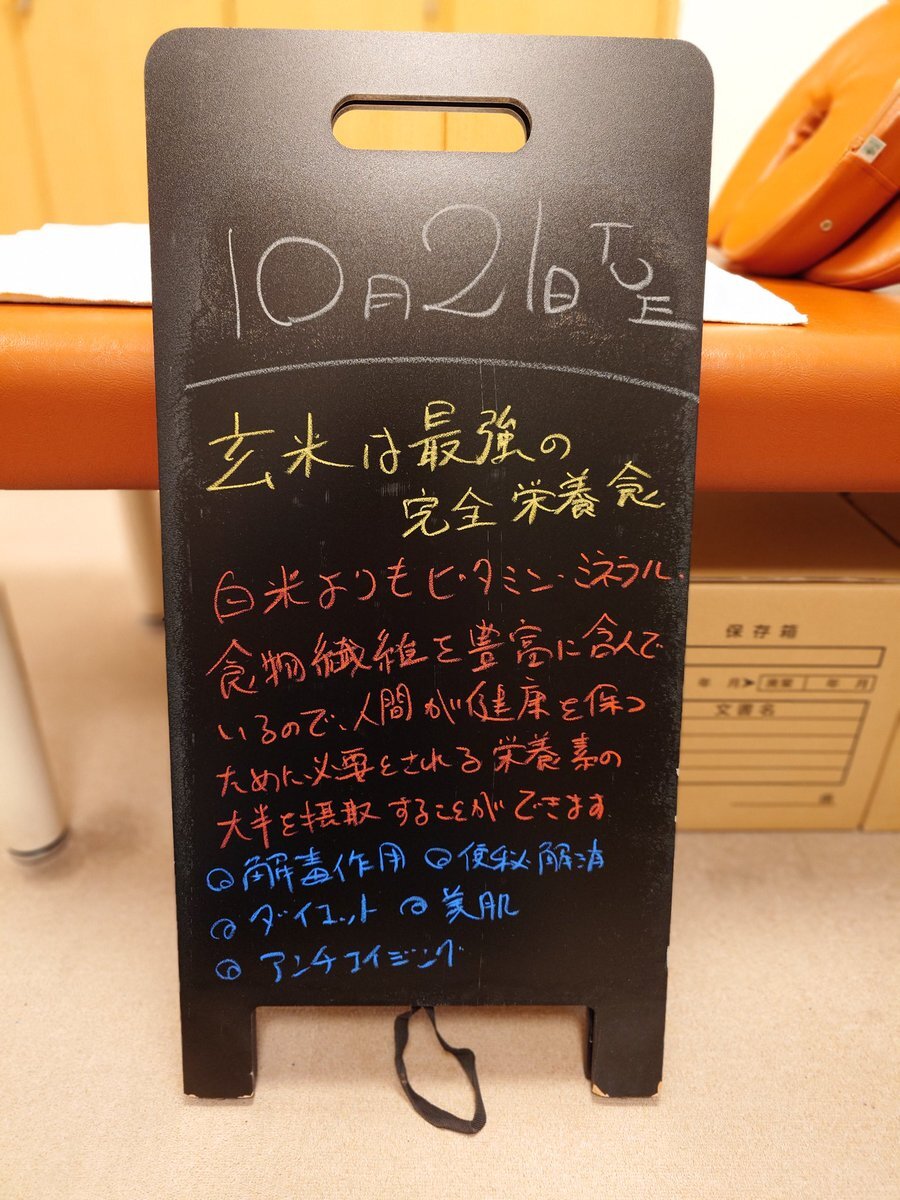 10月21日 TUE
玄米は最強の
完全栄養食
白米よりもビタミン・ミネラル、
食物繊維を豊富に含んで
いるので、人間が健康を保つ
ために必要とされる栄養素の
大半を摂取することができます
◎解毒作用 ◎便秘解消
◎ダイエット ◎美肌
◎アンチエイジング
保存箱
年 月 廃棄 年 月
文書名